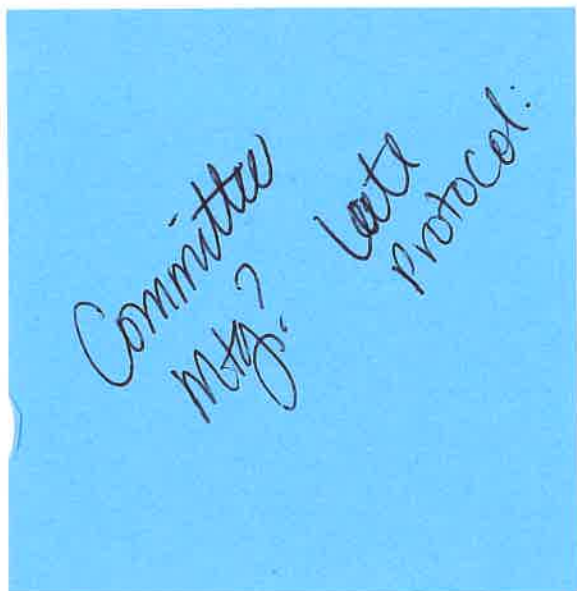 Committee
Mtg?
Late
Protocol: